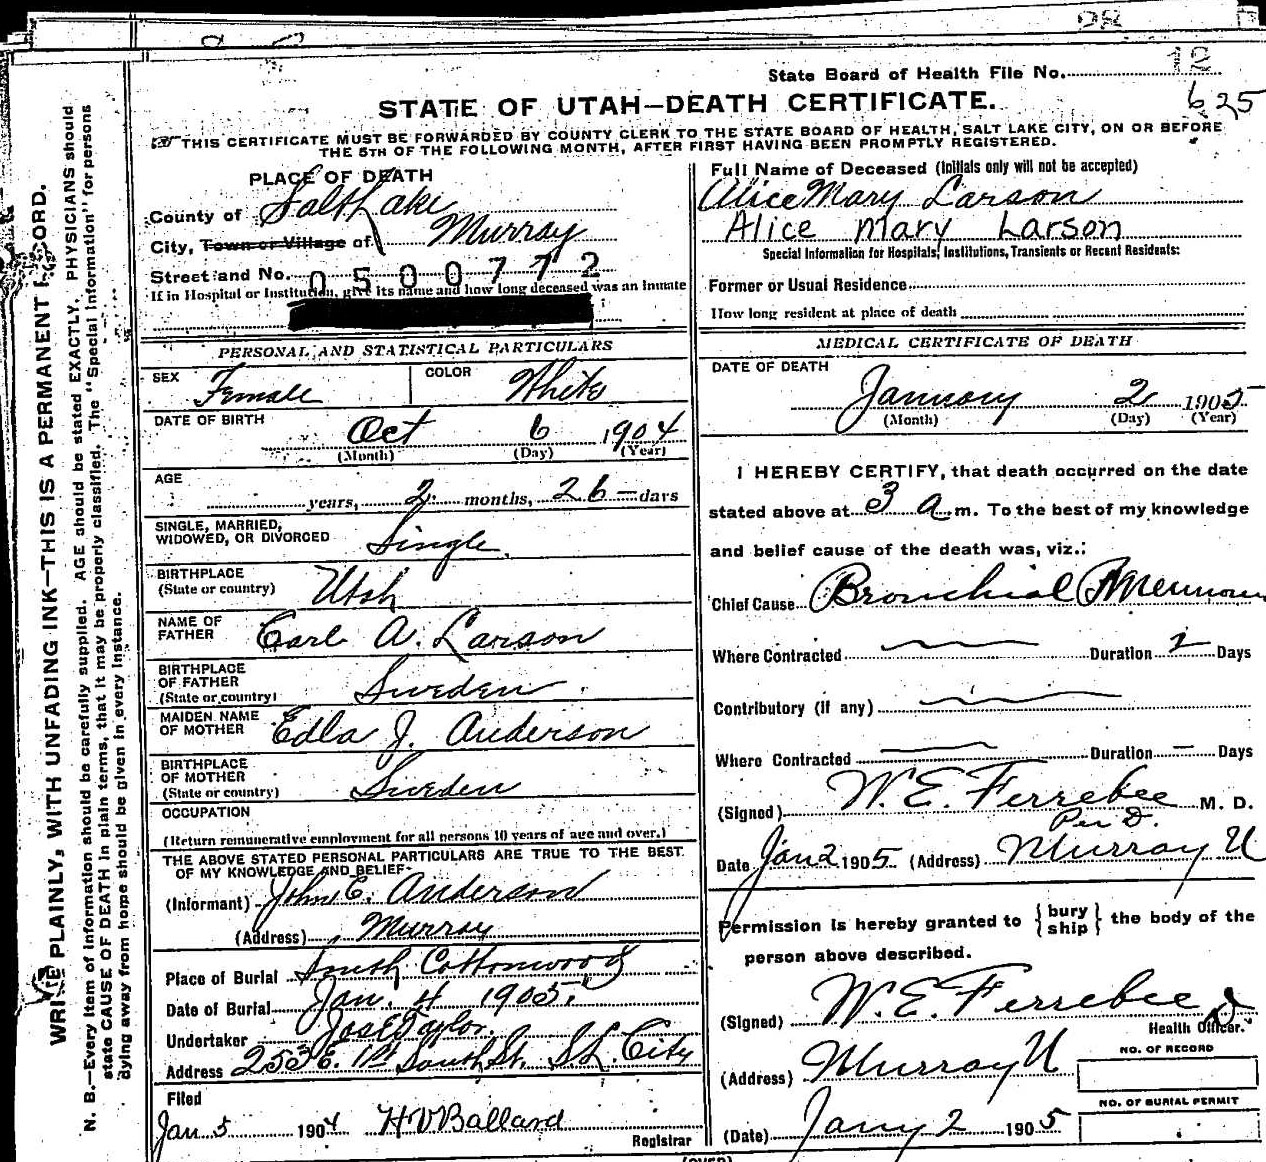 OR
12
State Board of Health File No.
625
STATE OF UTAH—DEATH CERTIFICATE.
THIS CERTIFICATE MUST BE FORWARDED BY COUNTY CLERK TO THE STATE BOARD OF HEALTH, SALT LAKE CITY, ON OR BEFORE
THE 5TH OF THE FOLLOWING MONTH, AFTER FIRST HAVING BEEN PROMPTLY REGISTERED.
WRITE PLAINLY, WITH UNFADING INK—THIS IS A PERMANENT RECORD.
N. B.—Every item of information should be carefully supplied. AGE should be stated EXACTLY. PHYSICIANS should
state CAUSE OF DEATH in plain terms, that it may be properly classified. The "Special Information" for persons
dying away from home should be given in every instance.
PLACE OF DEATH
County of Salt Lake
City, Town or Village of Murray
Street and No. 0500772
If in Hospital or Institution, give its name and how long deceased was an inmate
PERSONAL AND STATISTICAL PARTICULARS
SEX Female COLOR White
DATE OF BIRTH
Oct 6 1904
(Month) (Day) (Year)
AGE
years, 2 months, 26 — days
SINGLE, MARRIED,
WIDOWED, OR DIVORCED Single
BIRTHPLACE
(State or country) Utah
NAME OF
FATHER Carl A. Larson
BIRTHPLACE
OF FATHER
(State or country) Sweden
MAIDEN NAME
OF MOTHER Edla J. Anderson
BIRTHPLACE
OF MOTHER
(State or country) Sweden
OCCUPATION
(Return remunerative employment for all persons 10 years of age and over.)
THE ABOVE STATED PERSONAL PARTICULARS ARE TRUE TO THE BEST
OF MY KNOWLEDGE AND BELIEF
(Informant) John E. Anderson
(Address) Murray
Place of Burial South Cottonwood
Date of Burial Jan. 4 1905.
Undertaker Jos E Taylor.
Address 253 E. 1st South St. S.L. City
Filed
Jan 5 1904 H V Ballard
Registrar
Full Name of Deceased (Initials only will not be accepted)
Alice Mary Larson
Alice Mary Larson
Special Information for Hospitals, Institutions, Transients or Recent Residents:
Former or Usual Residence
How long resident at place of death
MEDICAL CERTIFICATE OF DEATH
DATE OF DEATH
January 2 1905
(Month) (Day) (Year)
I HEREBY CERTIFY, that death occurred on the date
stated above at 3 a m. To the best of my knowledge
and belief cause of the death was, viz.:
Chief Cause Bronchial Pneumon
Where Contracted — Duration 2 Days
Contributory (if any) —
Where Contracted — Duration — Days
(Signed) W. E. Ferrebee M. D.
Per D.
Date Jan 2 1905 (Address) Murray U
Permission is hereby granted to { bury ship } the body of the
person above described.
(Signed) W. E. Ferrebee
Health Officer.
(Address) Murray U
NO. OF RECORD
NO. OF BURIAL PERMIT
(Date) Jany 2 1905
(OVER)